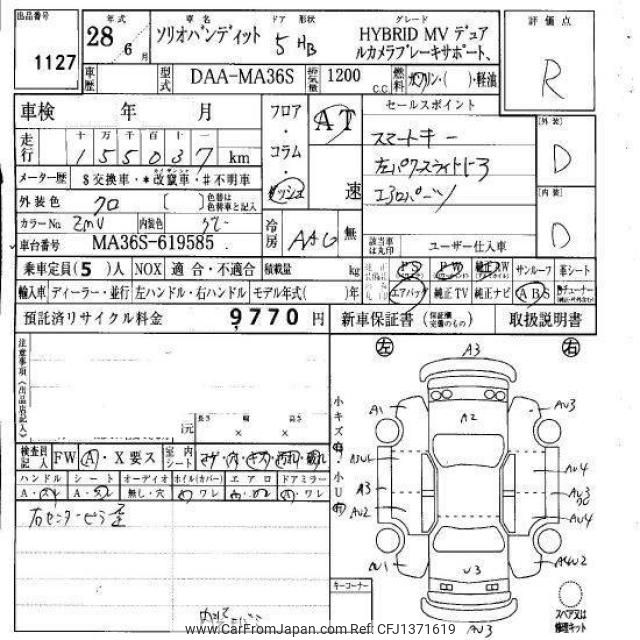 出品番号 1127
年式 28年 6月
車名 ソリオバンディット
ドア 形状 5 HB
グレード HYBRID MV デュアルカメラブレーキサポート、
評価点 R
車歴
型式 DAA-MA36S
排気量 1200 C.C.
燃料 ガソリン・( )・軽油
車検 年 月
フロア・コラム・
AT
速
セールスポイント
スマートキー
左パワースライドドア
エアロパーツ
[外装] D
[内装] D
走行 十 万 千 百 十 一
155037 km
メーター歴 $交換車・*改竄車・#不明車
外装色 クロ [ ] 色替は色替車と記入
カラーNo ZMV 内装色
車台番号 MA36S-619585
冷房 AAC 無
該当車は丸印 ユーザー仕入車
乗車定員(5)人 NOX 適合・不適合 積載量 kg
PS PW 純正AW サンルーフ 革シート
輸入車 ディーラー・並行 左ハンドル・右ハンドル モデル年式( )年
エアバッグ 純正TV 純正ナビ ABS
預託済リサイクル料金 9,770 円
新車保証書 (保証欄完備のもの) 取扱説明書
注意事項(出品店記入)
長さ 幅 高さ
× ×
検査員記入 FW A・X要ス 室内シート
ハンドル シート オーディオ ホイル(カバー) エアロ ドアミラー
無し・穴 ワレ
右センターピラー歪
小キズ有・小U有
左 右
A3
A1
A2
AU3
AU4
A3
AU3
AU2
AU4
AU1
U3
AU3
キーコーナー
スペア又は修理キット
www.CarFromJapan.com Ref:CFJ1371619